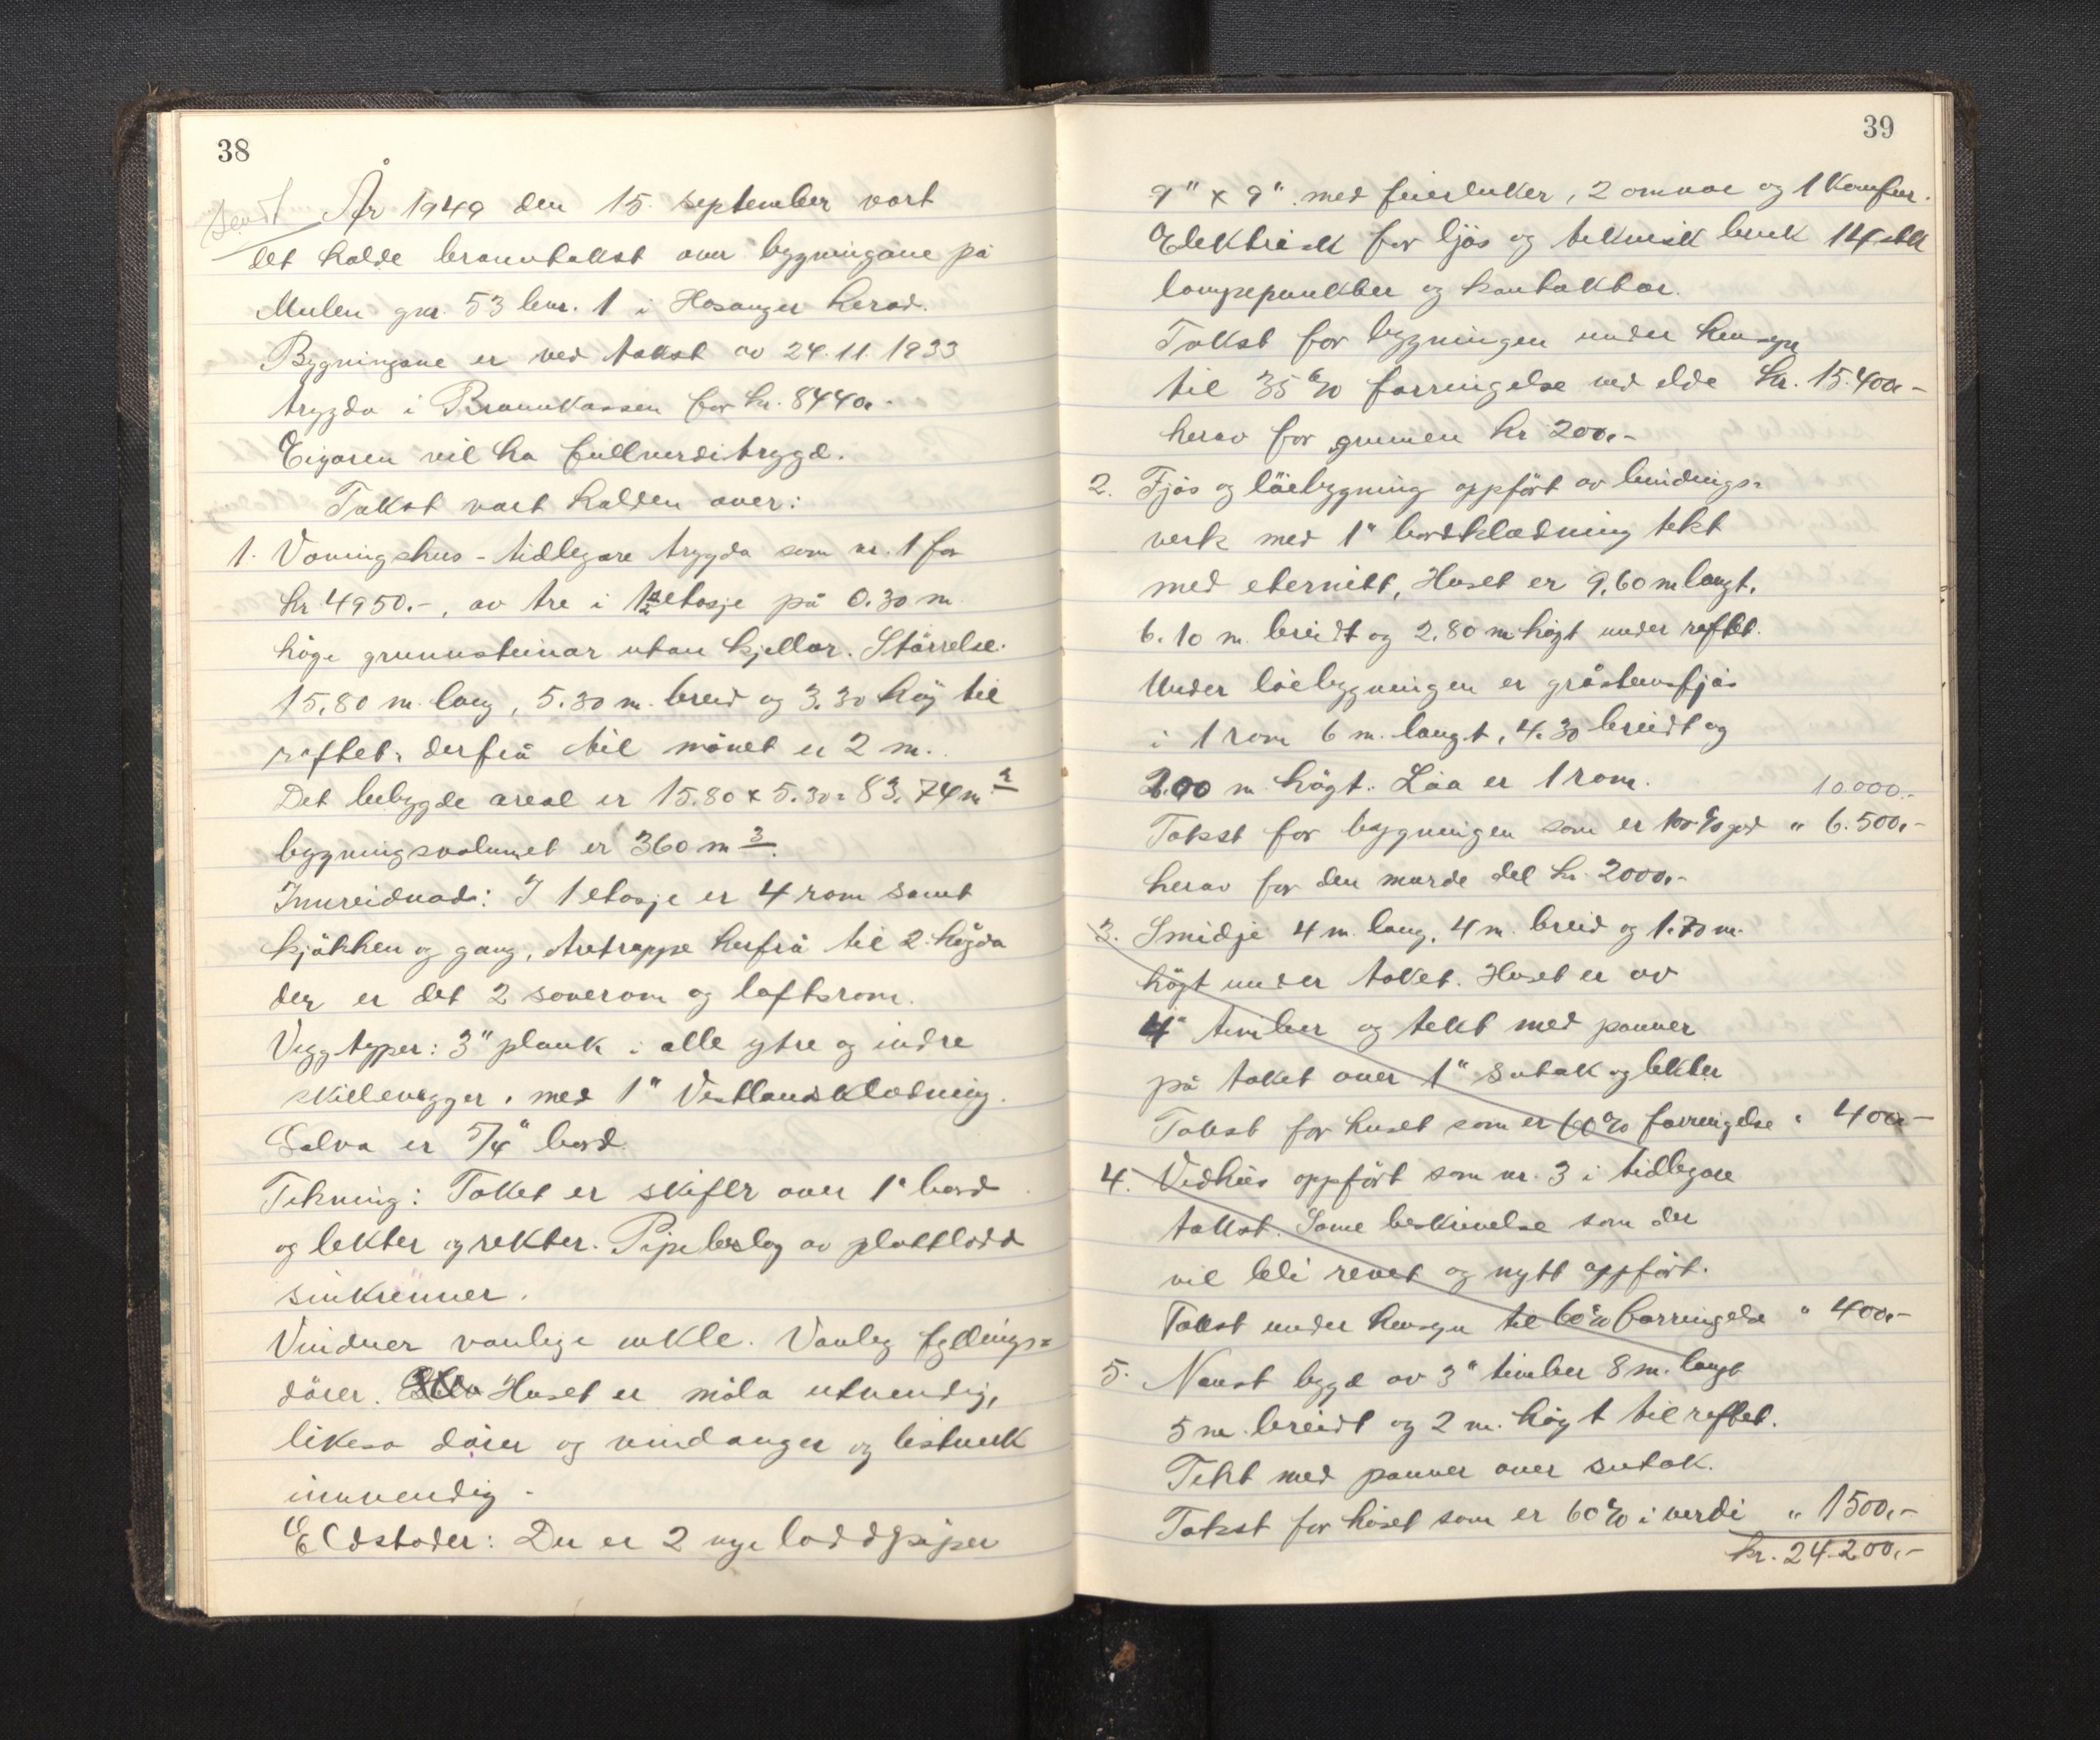 38
Sendt År 1949 den 15. september vart
det halde branntakst over bygningane på
Mulen gnr. 53 bnr. 1 i Hosanger herad.
Bygningane er ved takst av 24.11.1933
trygda i Brannkassen for kr. 8440.-
Eigaren vil ha fullverditrygd.
Takst vart halden over:
1. Våningshus - tidlegare trygda som nr. 1 for
kr 4950.-, av tre i 1½ etasje på 0.30 m.
høge grunnsteinar utan kjellar. Størrelse.
15.80 m. lang, 5.30 m. breid og 3.30 høg til
raftet. derfrå til mønet er 2 m.
Det bebygde areal er 15.80 x 5.30 = 83.74 m²
bygningsvolumet er 360 m³.
Innreidnad: I 1 etasje er 4 rom samt
kjøkken og gang, tretrappe herfrå til 2. høgda
der er det 2 soverom og loftsrom.
Veggtyper: 3" plank i alle ytre og indre
skillevegger. med 1" Vestlandsklædning.
Golva er 5/4" bord.
Tekning: Taket er skifer over 1" bord
og lekter og rekter. Pipebeslag av plattlodd
sinkrenner.
Vinduer vanlige enkle. Vanleg fyllings=
dører. Huset er måla utvendig,
likeso dører og vindauger og listverk
innvendig.
Eldstader: Der er 2 nye loddpiper
39
9" x 9" med feierluker, 2 omnar og 1 komfur.
Elektrisk for ljos og teknisk bruk 14 stk
lampepunkter og kontaktar.
Takst for bygningen under hensyn
til 35% forringelse ved elde kr. 15.400.-
herav for grunnen kr 200.-
2. Fjøs og løebygning oppført av bindings=
verk med 1" bordklædning tekt
med eternitt, Huset er 9.60 m langt.
6.10 m. breidt og 2.80 m høgt under raftet.
Under løebygningen er gråsteinsfjøs
i 1 rom 6 m. langt, 4.30 breidt og
2.00 m høgt. Løa er 1 rom.
10.000.-
Takst for bygningen som er 100% god " 6.500.-
herav for den murde del kr. 2000.-
3. Smidje 4 m. lang, 4 m. breid og 1.70 m.
høgt under taket. Huset er av
4" timber og tekt med panner
på taket over 1" sutak og lekter
Takst for huset som er 60% forringelse " 400.-
4. Vedhus oppført som nr. 3 i tidlegare
takst. Same beskrivelse som der
vil bli revet og nytt oppført.
Takst under hensyn til 60% forringelse " 400.-
5. Naust bygd av 3" timber 8 m. langt
5 m. breidt og 2 m. høgt til raftet.
Tekt med panner over sutak.
Takst for huset som er 60% i verdi " 1500.-
kr. 24.200.-